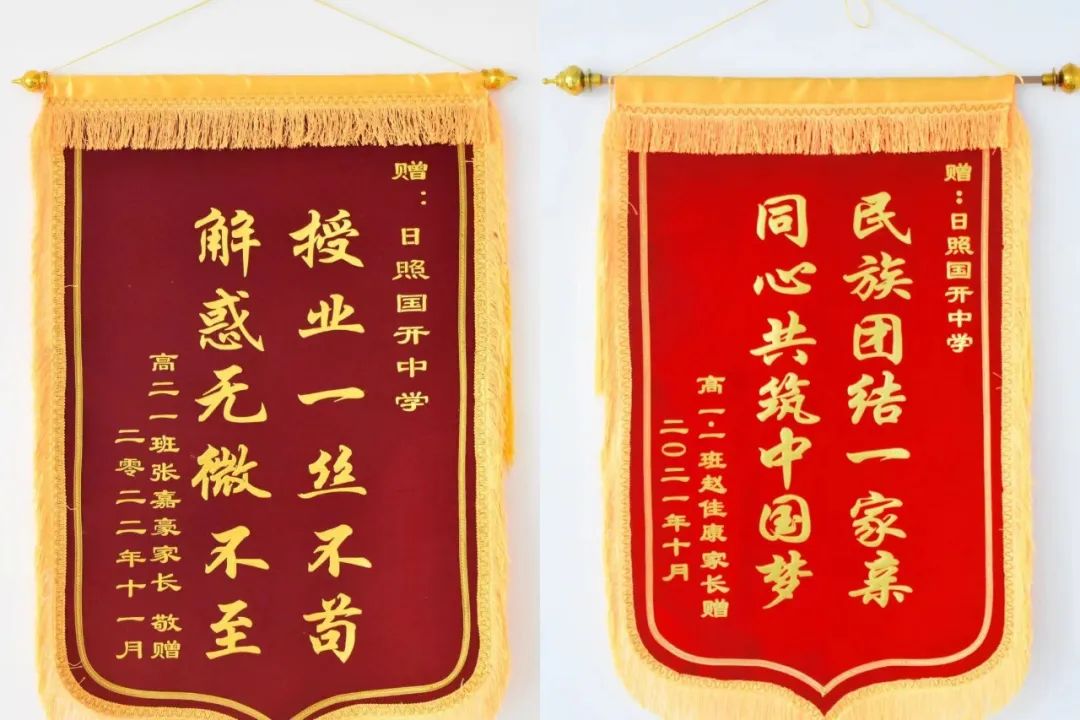 赠：日照国开中学
授业一丝不苟
解惑无微不至
高二一班张嘉豪家长 敬赠
二零二二年十一月
赠：日照国开中学
民族团结一家亲
同心共筑中国梦
高一·一班赵佳康家长赠
二〇二一年十月